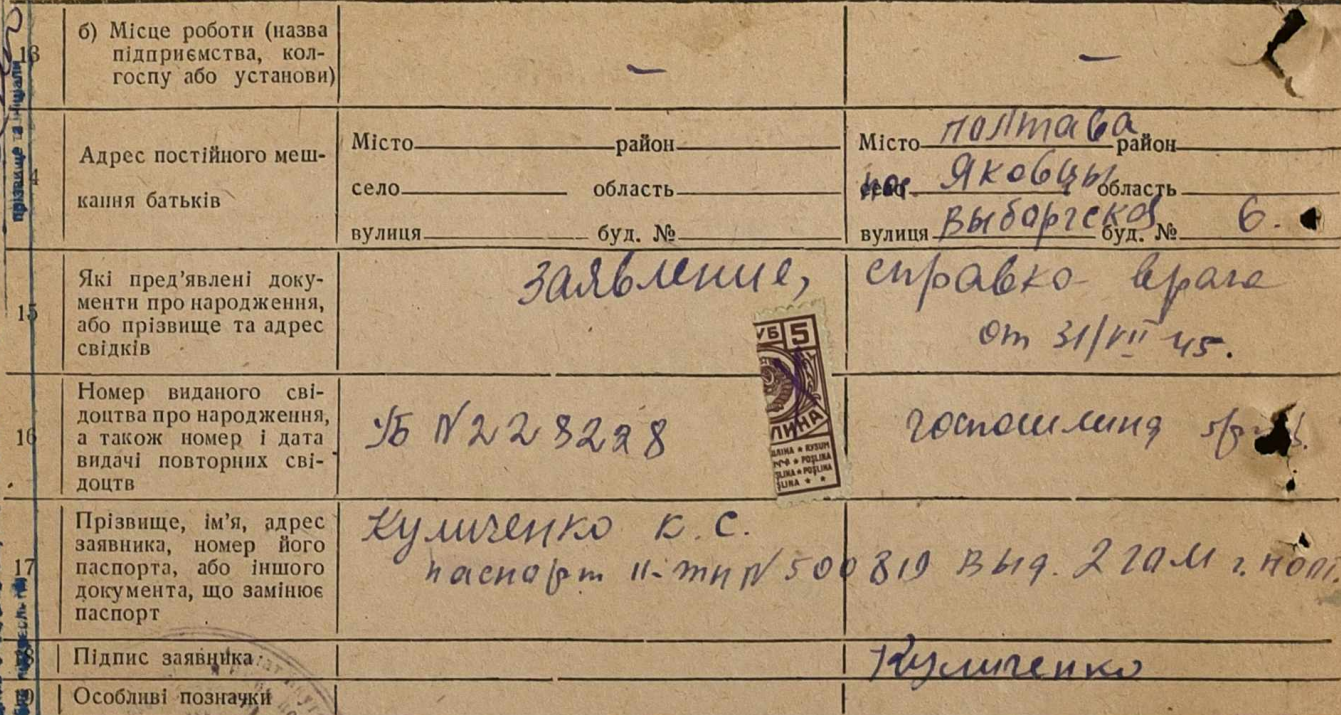 13
б) Місце роботи (назва
підприємства, кол-
госпу або установи)
—
—
Адрес постійного меш-
кання батьків
Місто район
село область
вулиця буд. №
Місто Полтава район
пос. Яковцы область
вулиця Выборгская буд. № 6.
15
Які пред’явлені доку-
менти про народження,
або прізвище та адрес
свідків
заявление, справка врача
от 31/VII 45.
УБ 5
ЛИНА
16
Номер виданого сві-
доцтва про народження,
а також номер і дата
видачі повторних сві-
доцтв
УБ N 228228
госпошлина
17
Прізвище, ім’я, адрес
заявника, номер його
паспорта, або іншого
документа, що замінює
паспорт
Куличенко К. С.
паспорт II-тн N 500819 выд. 2 гом г. Пол
18
Підпис заявника
Куличенко
19
Особливі позначки
прізвище та